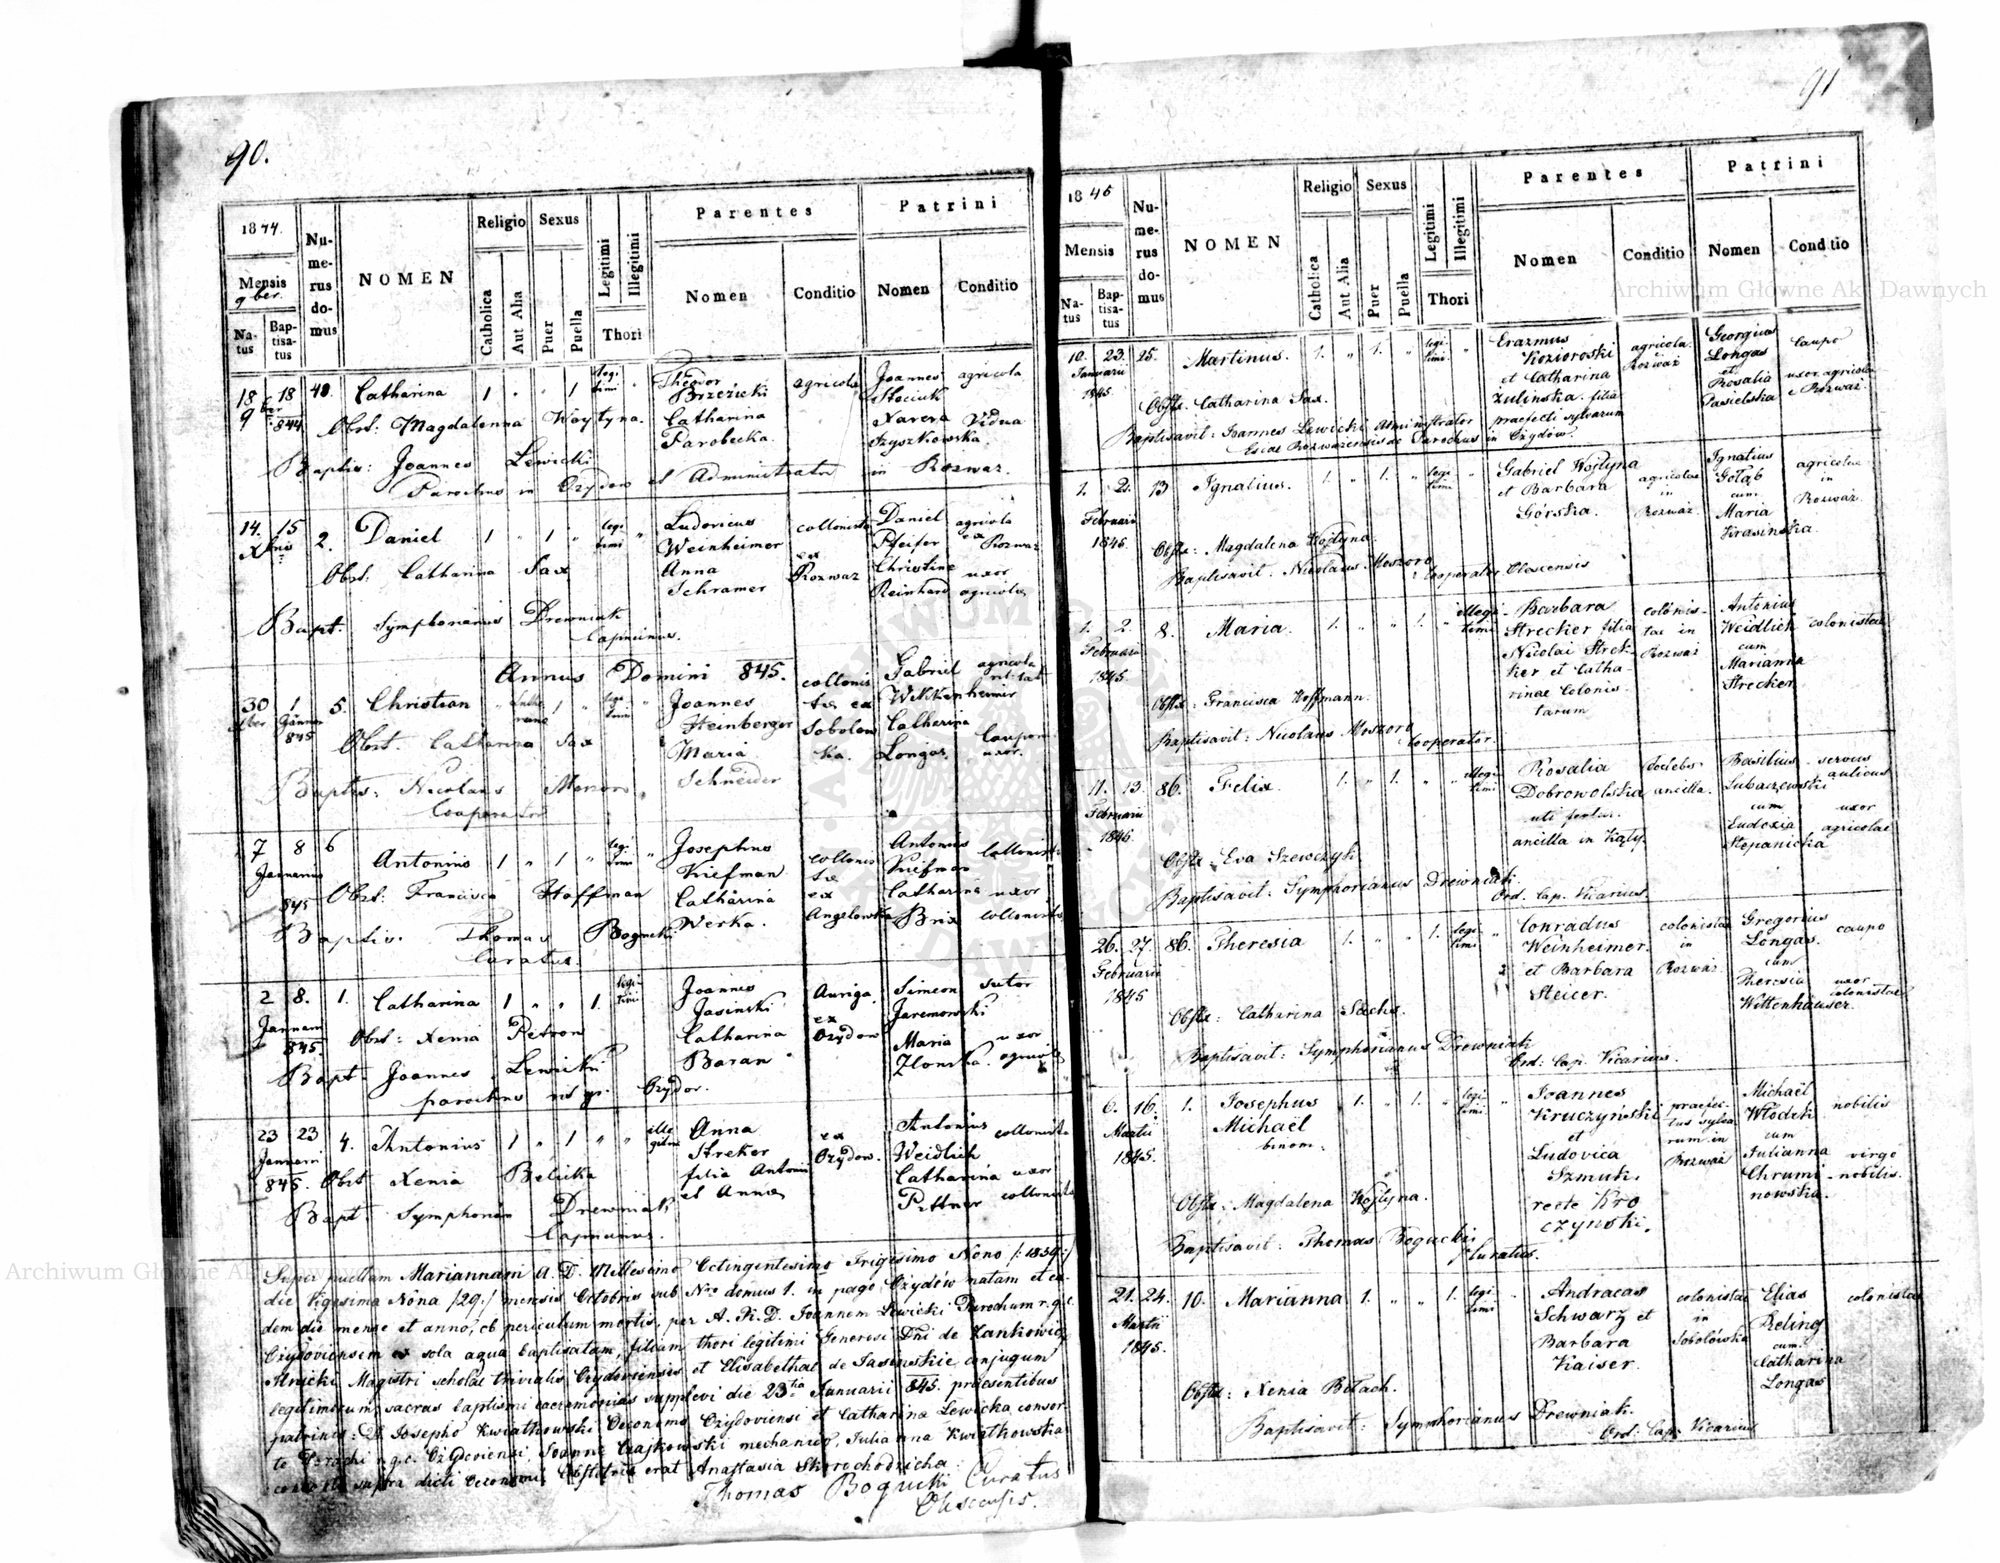 90.
1844.
Mensis
9ber.
Natus
Baptisatus
Numerus domus
NOMEN
Religio
Catholica
Aut Alia
Sexus
Puer
Puella
Legitimi
Illegitimi
Thori
Parentes
Nomen
Conditio
Patrini
Nomen
Conditio
18 18 40. Catharina 1 " " 1 legitimi " Theodor agricola Joannes agricola
9ber 844 Brzezicki Stociuk
Obst: Magdalenna Woytyna. Catharina Xavera Vidua
Parobecka. Szyszkowska.
Baptis: Joannes Lewicki
Parochus in Ozydow et Administrator in Rozwaz.
14. 15 2. Daniel 1 " 1 " legitimi " Ludovicus collonista Daniel agricola
Xbris Weinheimer ex Pfeifer ex Rozwaz
Obst: Catharina Sax Anna Rozwaz Christine uxor
Schramer Reinhard agricolae
Bapt. Symphorianus Drewniak
Capucinus.
Annus Domini 845.
30 1 5. Christian 1 " legitimi " Joannes collonistae ex Gabriel agricola
Xber Januar Steinberger Sobolowka.
845 Obst. Catharina Sax Maria Catharina caupon
Schneider Longas uxor.
Baptis: Nicolaus Moszoro
Cooperator
7 8 6 Antonius 1 " 1 " legitimi " Josephus collonistae Antonius collonista
Januarius Kiefman ex Kiefman
845 Obst: Francisca Hoffman Catharina Angelowka Catharina uxor
Werka. Brix collonista
Baptis. Thomas Bogucki
Curatus.
2 8. 1. Catharina 1 " " 1. legitimi Joannes Auriga Simeon sutor
Januari Jasinski ex Jaremowski
845. Obst: Xenia Petron Catharina Ozydow Maria uxor
Baran Zlonska. agricola
Bapt. Joannes Lewicki
parochus rit. gr. Ozydov.
23 23 4. Antonius 1 " 1 " " illegitimi Anna ex Antonius collonista
Januari Streker Ozydow. Weidlich
845. Obst Xenia Belicka filia Antoni Catharina uxor
et Annae Pittner collonista
Bapt: Symphorian Drewniak
Capucinus.
Super puellam Mariannam A. D. Millesimo Octingentesimo Trigesimo Nono /:1839:/
die Vigesima Nona /29:/ mensis Octobris sub Nro domus 1. in pago Ożydów natam et eadem
die mense et anno, ob periculum mortis, per A. R. D. Joannem Lewicki Parochum r. g. c.
Ożydoviensem sola aqua baptisatam, filiam thori legitimi Generosi Dni de Zankowicz
Magistri scholae trivialis Ożydoviensis et Elisabethae de Jasinskie conjugum
legitimorum, sacras baptismi caeremonias supplevi die 23tia Januarii 845. praesentibus
patrinis: D. Josepho Kwiatkowski Oeconomo Ożydoviensi et Catharina Lewicka consorte
Parochi r. g. c. Ożydoviensi, Joanne Czajkowski mechanico, Julianna Kwiatkowska
consorte supra dicti Oeconomi. Obstetrix erat Anastasia Skorochodzicha.
Thomas Bogucki Curatus
Olescensis.
91
1845
Mensis
Natus
Baptisatus
Numerus domus
NOMEN
Religio
Catholica
Aut Alia
Sexus
Puer
Puella
Legitimi
Illegitimi
Thori
Parentes
Nomen
Conditio
Patrini
Nomen
Conditio
10. 23. 25. Martinus. 1. " 1. " legitimi " Erazmus agricola Georgius caupo
Januarii Kozioroski Rozważ Longas
1845. et Catharina et uxor agricolae
Obstx. Catharina Sax. Zulinska filia Rosalia e Rozważ.
Baptisavit: Joannes Lewicki Administrator praefecti sylvarum Pasielska
Ecclae Rozważensis de Parochus in Ożydów.
1. 2. 13 Ignatius. 1. " 1. " legitimi " Gabriel Wojtyna agricolae Ignatius agricolae
Februarii et Barbara in Gołąb in
1845. Górska. Rozważ. cum Rozważ.
Obstx: Magdalena Wojtyna. Maria
Baptisavit. Nicolaus Moszoro Cooperator Olescensis Krasinska.
1. 2. 8. Maria. 1. " " 1. " illegitimi Barbara colonistae in Antonius colonistae
Februarii Strecker filia Rozważ Weidlich
1845. Nicolai Strekker et Catharinae cum
Colonistarum Marianna
Obstx: Francisca Hoffmann. Strecker
Baptisavit: Nicolaus Moszoro Cooperator.
11. 13. 86. Felix. 1. " 1. " " illegitimi Rosalia ancilla. Basilius servus
Februarii Dobrowolska Lubaczewski aulicus
1845 uti fertur. cum uxor
Obstx: Eva Szewczyk ancilla in Kąty. Eudoxia agricolae
Baptisavit: Symphorianus Drewniak Stepanicka
Ord. Cap. Vicarius.
26. 27. 86. Theresia 1. " " 1. legitimi " Conradus colonistae Gregorius caupo
Februarii Weinheimer. in Longas.
1845 et Barbara Rozważ. cum
Steicer. Theresia uxor
Obstx: Catharina Sachs. Wittenhäuser. colonistae
Baptisavit: Symphorianus Drewniak
Ord: Cap. Vicarius.
6. 16. 1. Josephus 1. " 1. " legitimi " Joannes praefectus sylvarum in Michaël nobilis
Martii Michaël Kruczyński Rozważ Włodek
1845. binom. et cum
Ludovica Julianna virgo
Szmuk. Chruminowska. nobilis.
Obstx: Magdalena Wojtyna. recte Kroczynski.
Baptisavit: Thomas Bogucki
Curatus.
21. 24. 10. Marianna 1. " " 1. legitimi " Andraeas colonistae Elias colonistae
Martii Schwarz et in Reling
1845. Barbara Sobolówka cum
Kaiser. Catharina
Obstx: Xenia Betach. Longas
Baptisavit: Symphorianus Drewniak.
Ord: Cap. Vicarius
Archiwum Główne Akt Dawnych
Archiwum Główne Akt Dawnych